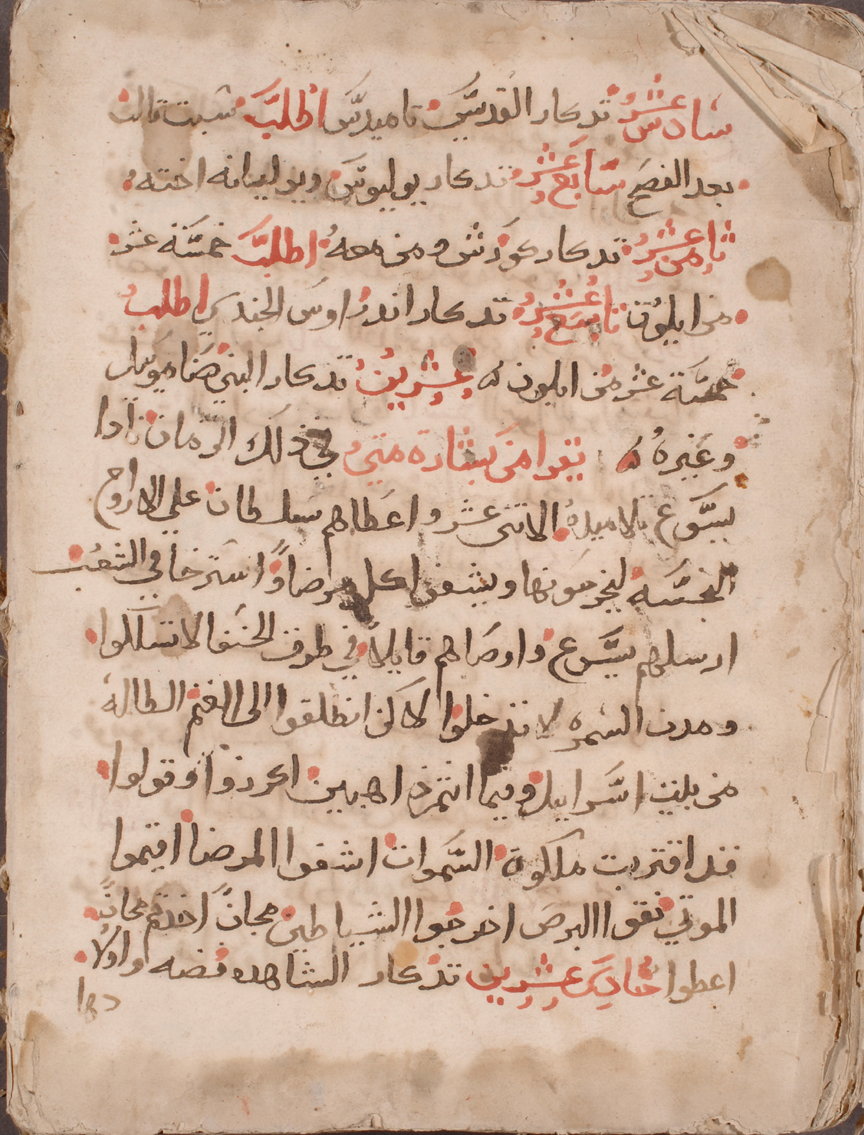 سادس عشر تدكار القدسين تاميدس اطلب سبت تالت
بعد الفصح سابع عشر تدكار يوليوس ويوليانه اخته
تامن عشر تدكار كودش ومن معه اطلب خمسة عشر
من ايلون تاسع عشر تدكار اندراوس الجندي اطلب
خمسة عشر من ايلون ه وعشرين تدكار النبي صاموييل
وغيره ه يقرا من بشارة متي في ذلك الزمان نادا
يسوع تلاميده الاتنى عشر واعطاهم سلطان علي الارواح
النجسه ليخرجونها ويشفوا كل مرضا واسترخا في الشعب
ارسلهم يسوع واوصاهم قايلا في طرق الحنفا لا تسلكلوا
ومدن السمره لا تدخلوا لاكن انطلقوا الى الغنم الطاله
من بيت اسراييل وفيما انتم داهبين اكردوا وقولوا
قد اقتربت ملكوة السموات اشفوا المرضا اقيموا
الموتي نقوا البرص اخرجوا الشياطين مجانا اخدتم مجانا
اعطوا حادي عشرين تدكار الشاهده فضه واولا
دها